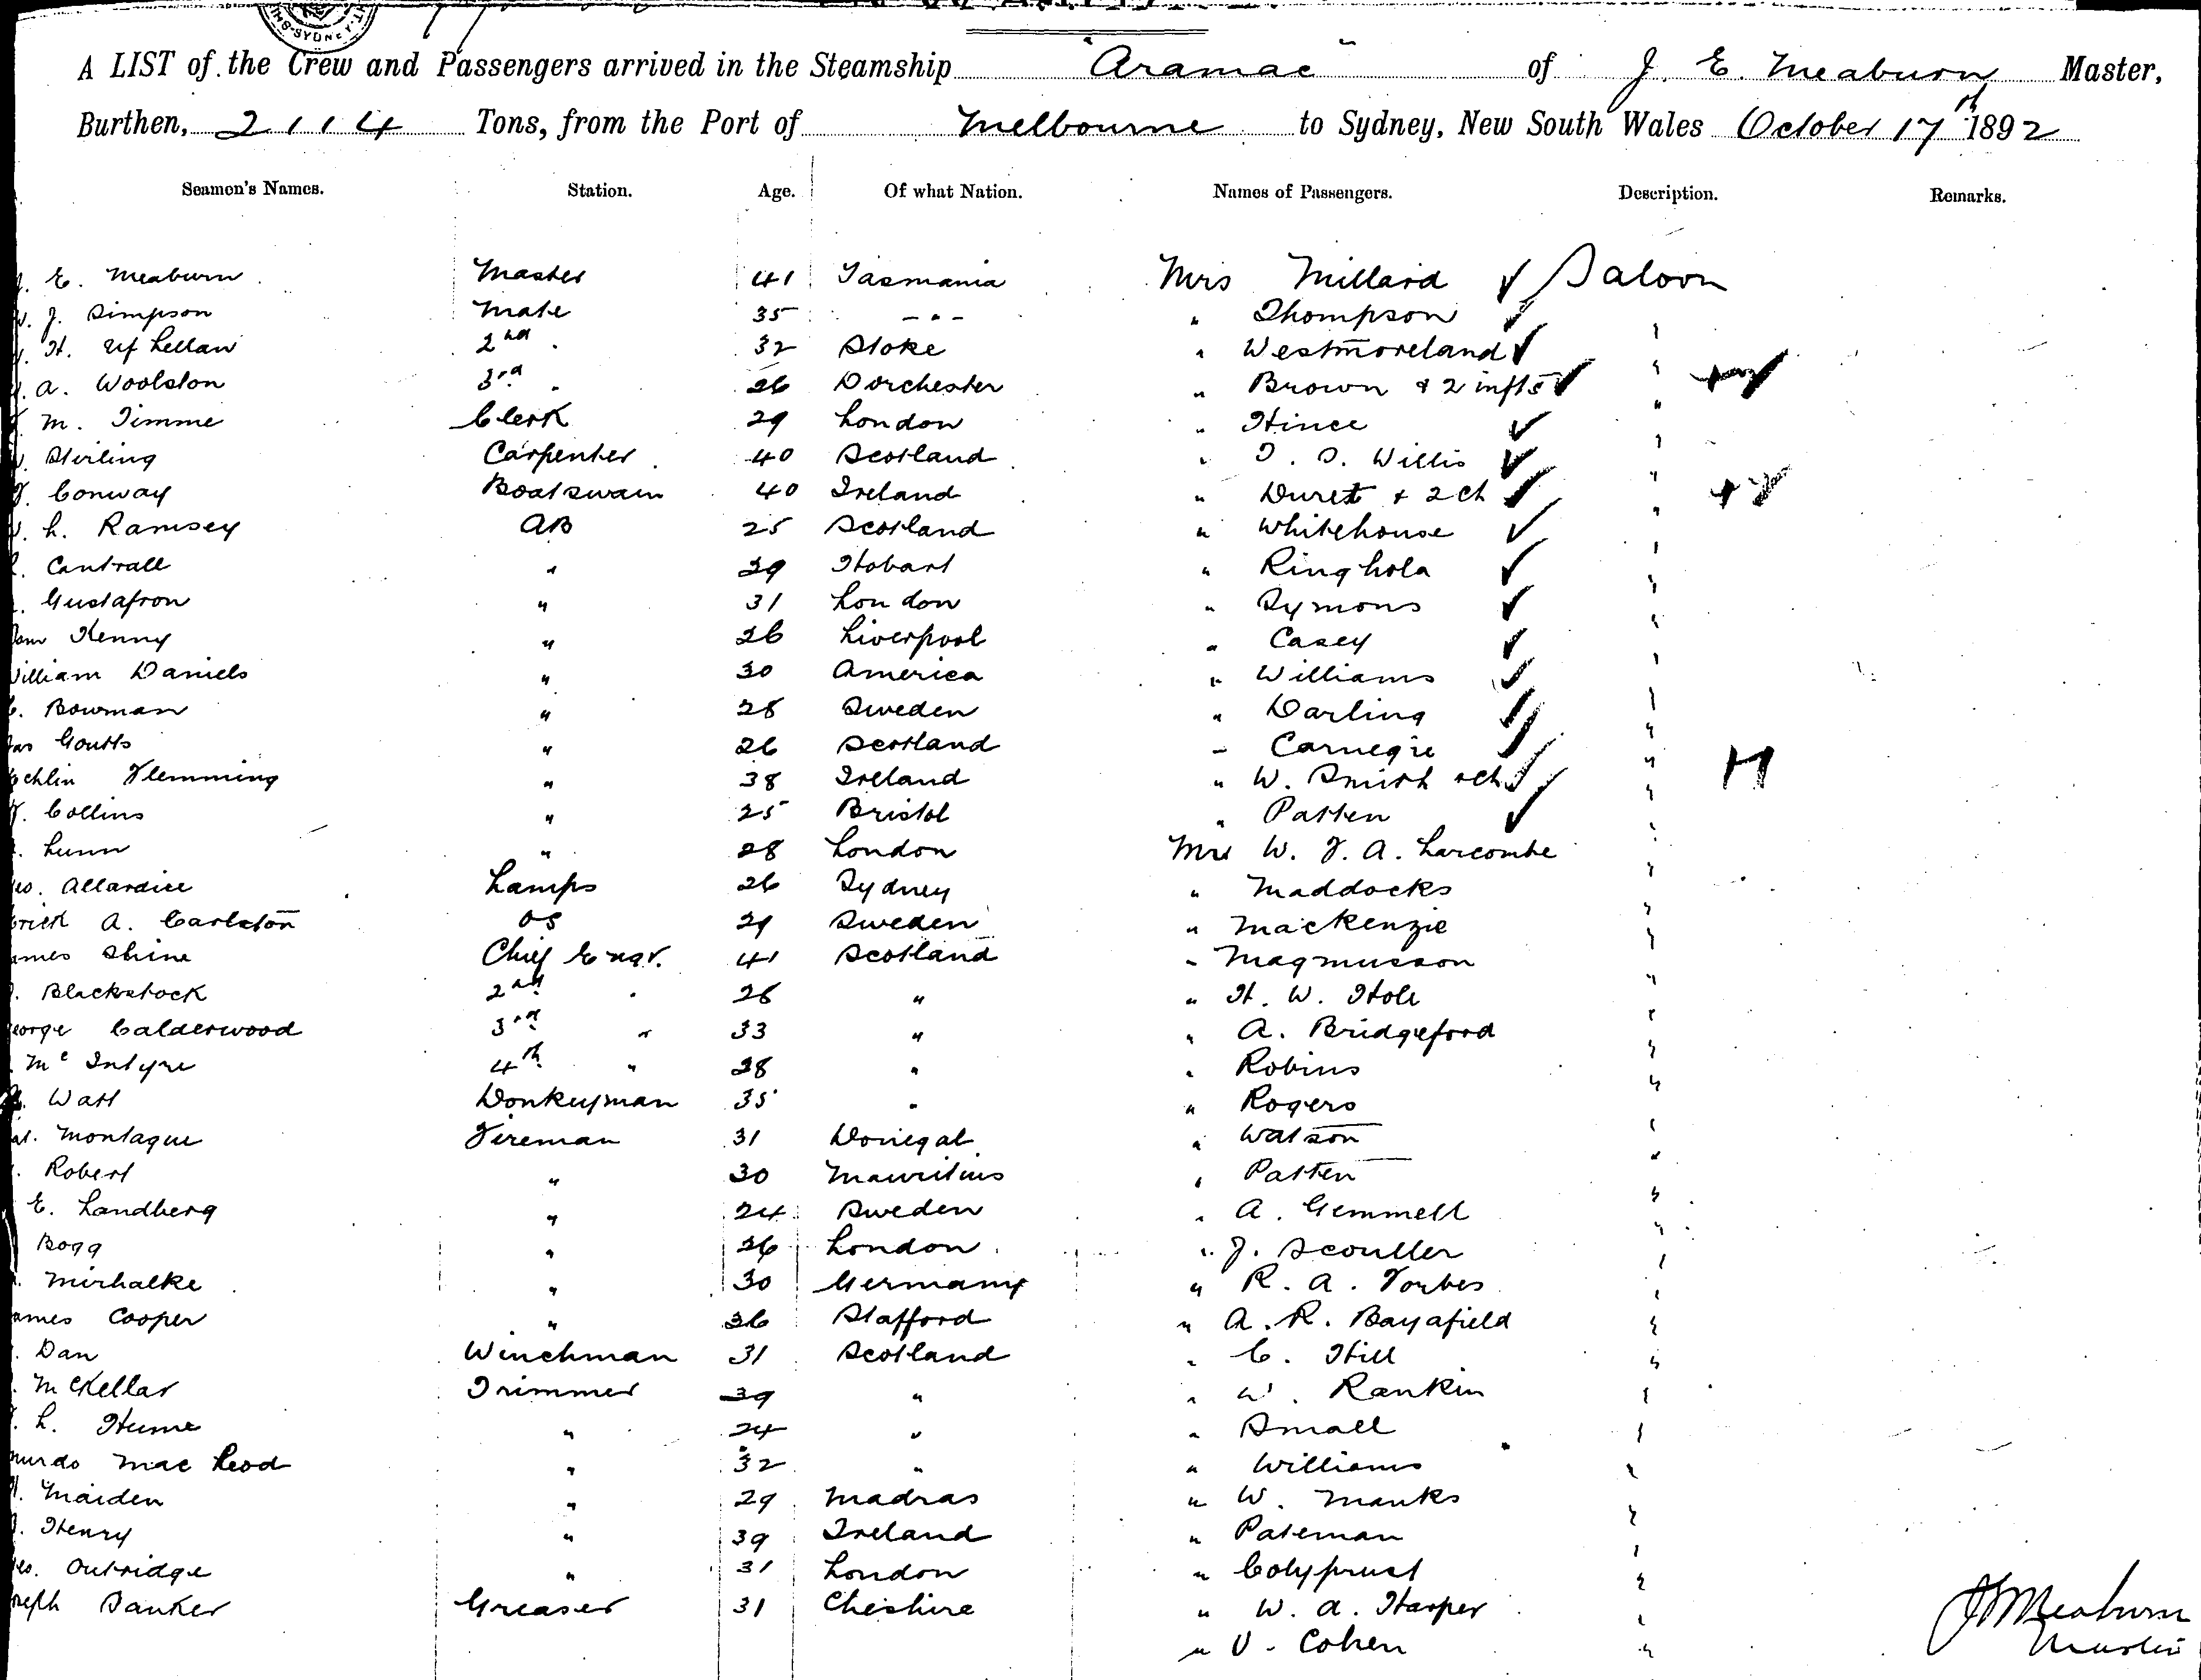 SYDNEY
A LIST of the Crew and Passengers arrived in the Steamship "Aramac" of J. E. Meaburn Master,
Burthen, 2114 Tons, from the Port of Melbourne to Sydney, New South Wales October 17th 1892
Seamen's Names. Station. Age. Of what Nation. Names of Passengers. Description. Remarks.
E. Meaburn Master 41 Tasmania Mrs Millard ✓ Saloon
J. Simpson Mate 35 - " - " Thompson ✓ "
H. 2nd " 32 Stoke " Westmoreland ✓ "
A. Woolston 3rd " 26 Dorchester " Brown & 2 infts ✓ "
M. Timme Clerk 29 London " Hince ✓ "
Stirling Carpenter 40 Scotland " T. S. Willis ✓ "
Conway Boatswain 40 Ireland " Duret + 2 ch ✓ "
L. Ramsey AB 25 Scotland " Whitehouse ✓ "
Cantrall " 39 Hobart " Ringhola ✓ "
Gustafson " 31 London " Symons ✓ "
Kenny " 26 Liverpool " Casey ✓ "
William Daniels " 30 America " Williams ✓ "
Bowman " 28 Sweden " Darling ✓ "
Goutts " 26 Scotland " Carnegie ✓ "
Flemming " 38 Ireland " W. Smith + ch ✓ "
Collins " 25 Bristol " Patten ✓ "
Lunn " 28 London Mr W. J. A. Larcombe "
Allardice Lamps 26 Sydney " Maddocks "
A. Carlston OS 29 Sweden " Mackenzie "
James Shine Chief Engr. 41 Scotland " Magmusson "
Blackstock 2nd " 28 " " H. W. Hole "
George Calderwood 3rd " 33 " " A. Bridgeford "
Mc Intyre 4th " 28 " " Robins "
Watt Donkeyman 35 " " Rogers "
Montague Fireman 31 Donegal " Watson "
Robert " 30 Mauritius " Patten "
E. Landberg " 24 Sweden " A. Gemmell "
Bogg " 26 London " J. Scouller "
Mirhalke " 30 Germany " R. A. Forbes "
James Cooper " 36 Stafford " A. R. Bayafield "
Dan Winchman 31 Scotland " C. Hill "
McKellar Trimmer 39 " " W. Rankin "
L. Hume " 24 " " Small "
Murdo Mac Leod " 32 " " Williams "
Maiden " 29 Madras " W. Manks "
Henry " 39 Ireland " Pateman "
Outridge " 31 London " Colyprust "
Joseph Banker Greaser 31 Cheshire " W. A. Harper "
" V. Cohen "
J E Meaburn
Master